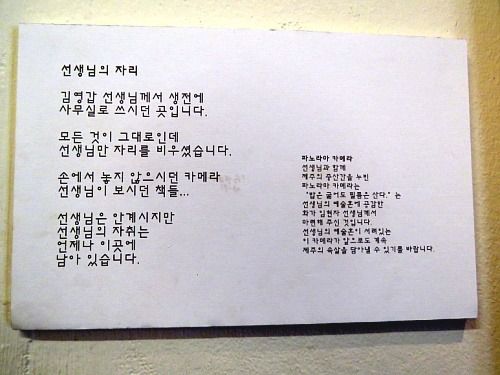 선생님의 자리
김영갑 선생님께서 생전에
사무실로 쓰시던 곳입니다.
모든 것이 그대로인데
선생님만 자리를 비우셨습니다.
손에서 놓지 않으시던 카메라
선생님이 보시던 책들...
선생님은 안계시지만
선생님의 자취는
언제나 이곳에
남아 있습니다.
파노라마 카메라
선생님과 함께
제주의 중산간을 누빈
파노라마 카메라는
"밥은 굶어도 필름은 산다." 는
선생님의 예술혼에 공감한
화가 임현자 선생님께서
마련해 주신 것입니다.
선생님의 예술혼이 서려있는
이 카메라가 앞으로도 계속
제주의 속살을 담아낼 수 있기를 바랍니다.